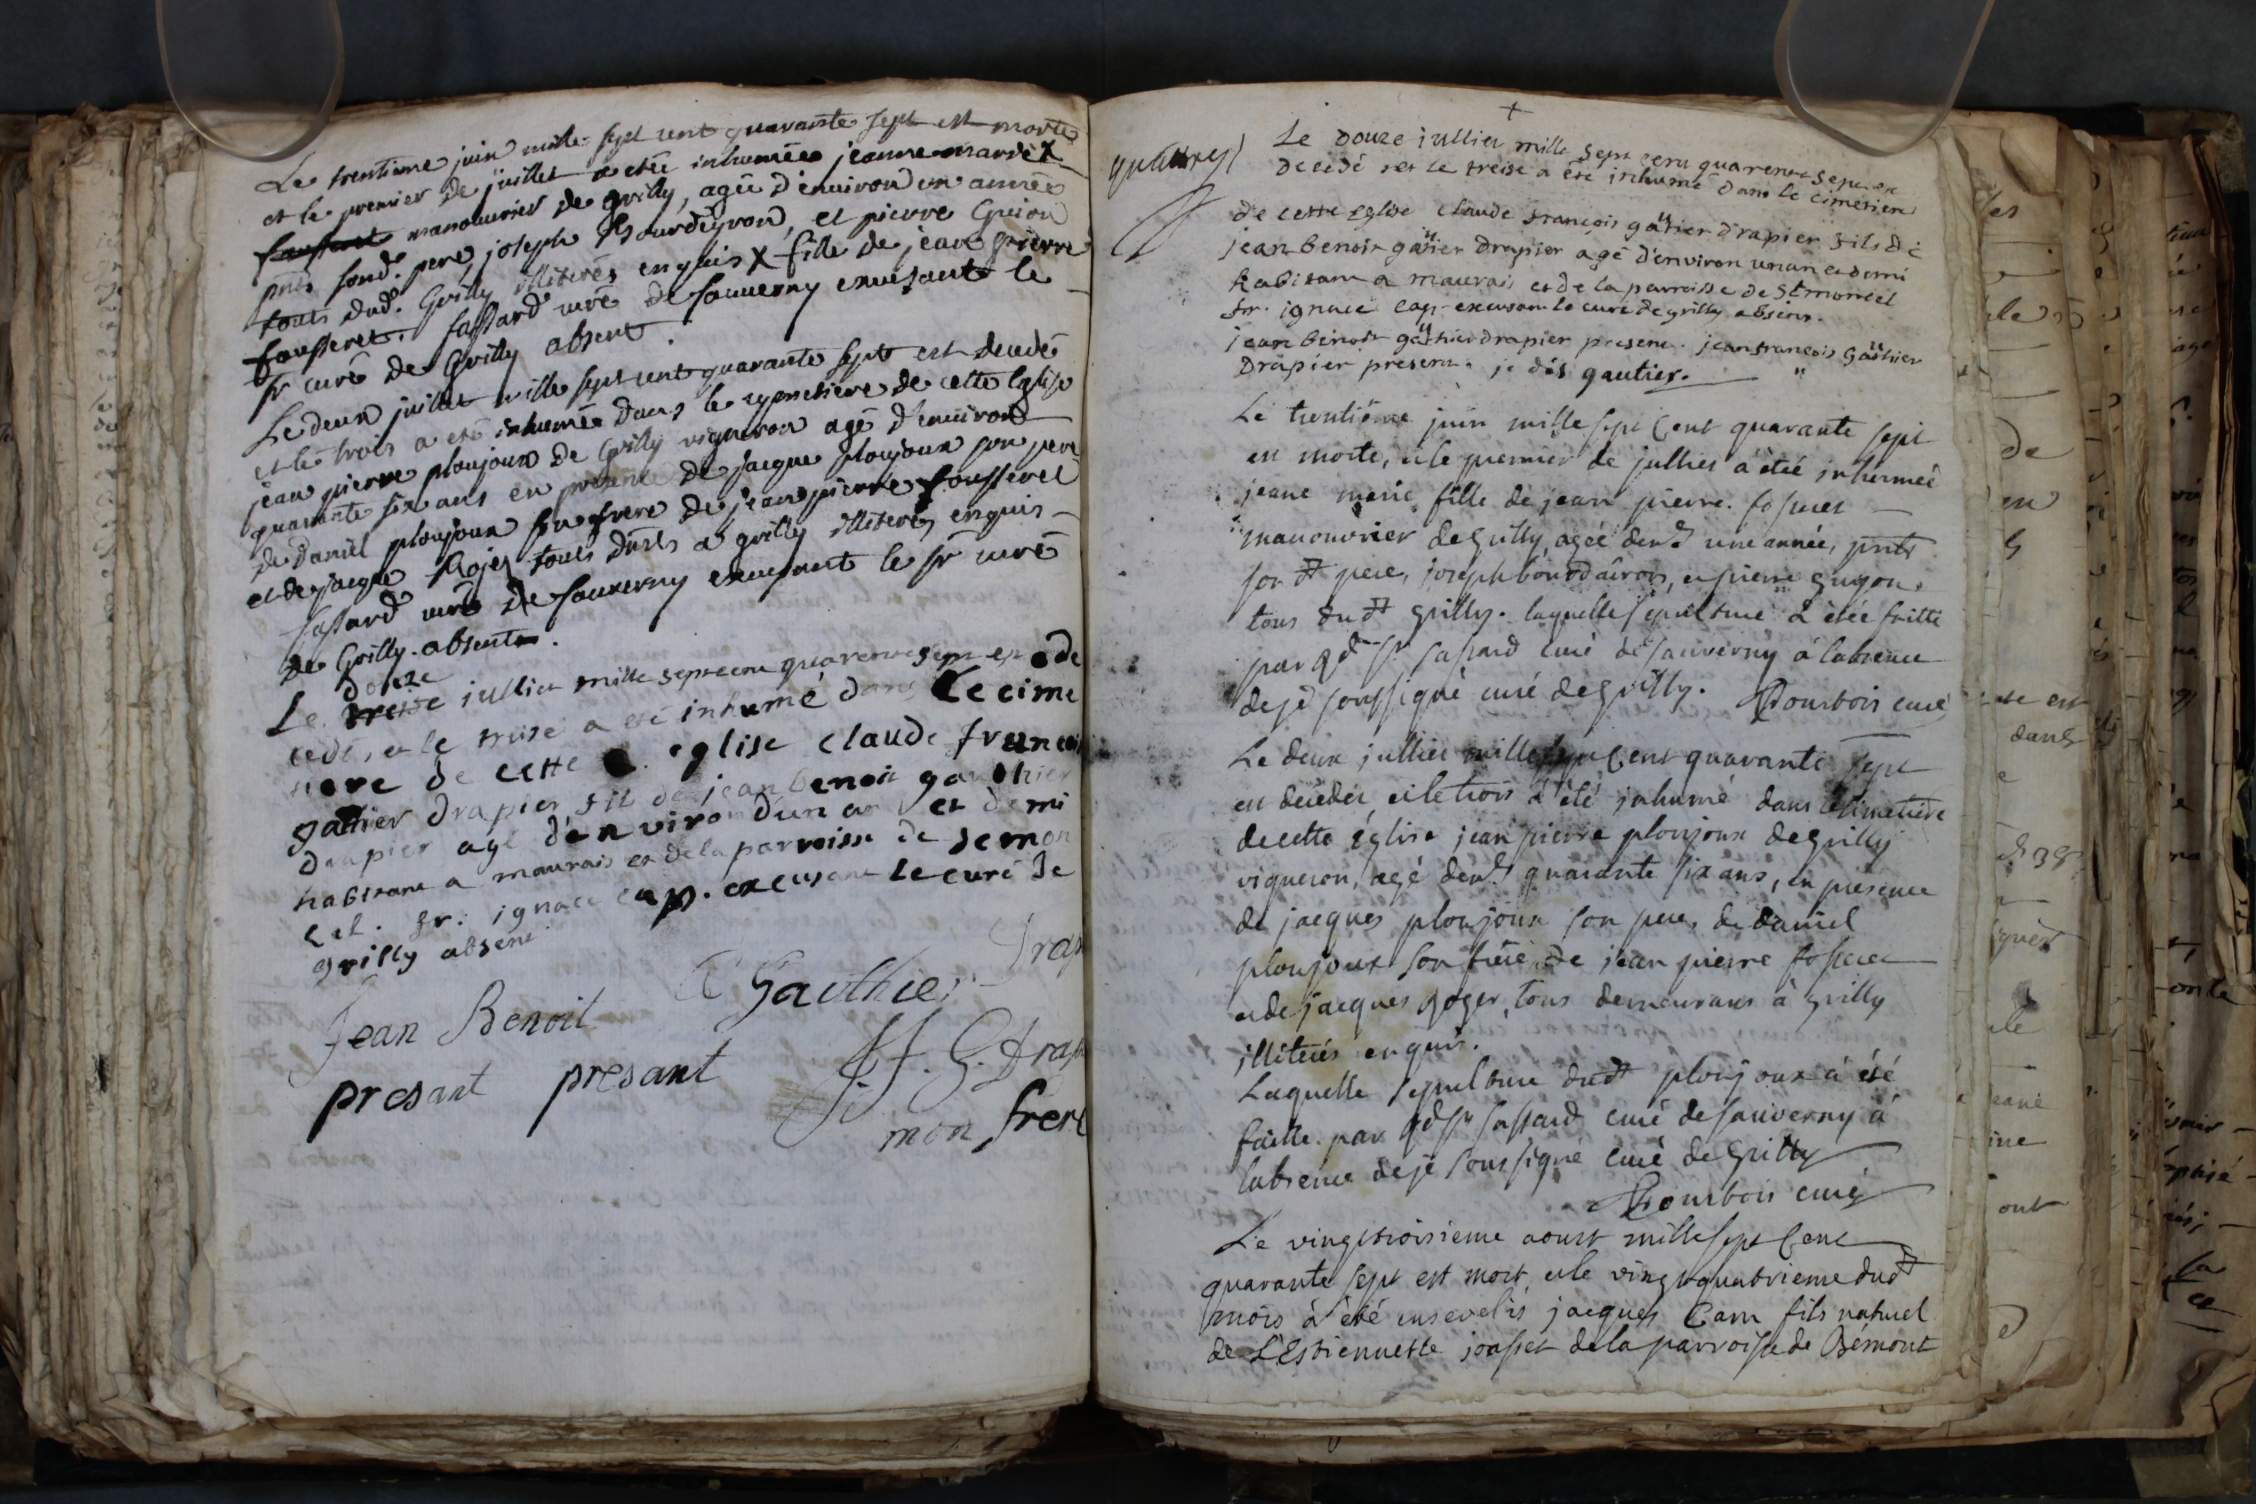 Le trentieme juin mille sept cent quarante sept est morte
et le premier de juillet a etée inhumée jeanne marie X
fausseret manouurier de grilly, agée d'enuiron un année
pnts sond. pere, joseph Bourdeyron, et pierre Guion
touts dud. Grilly illiterés enquis X fille de jean pierre
fausseret. fassard curé de sauuerny excusant le
sr curé de Grilly absent.
Le deux juillet mille sept cent quarante sept est decedé
et le trois a eté inhumé dans le cymetiere de cette Eglise
jean pierre ploujoux de Grilly vigneron agé d'enuiron
quarante six ans en presence de jacque ploujoux son pere
de Daniel ploujoux son frere de jean pierre fousseret
et de jacque Rojes touts dnts a grilly illiterés enquis
fassard curé de sauuerny excusant le sr curé
de Grilly absent.
douze
Le treise iullier mille sept cent quarente sept est de
cedé, et le treise a eté inhumé dans Le cime
tiere de cette eglise claude francois
gattier drapier fils de jean benoit gauthier
drapier agé d'enviro d'un an et demi
habitant a maurais et de la parroisse de semon
cel. fr. ignace cap. excusant le curé de
grilly absent
Jean Benoit Gauthier Drap
presant presant J. f. G. drap
mon frere
+
Le Douze iullier mille sept cent quarente sept est
decedé et le treise a eté inhumé dans le cimetiere
de cette Eglise claude françois gautier Drapier fils de
jean benoit gautier Drapier agé d'environ un an et demi
habitant a maurais et de la parroisse de St moncel
fr. ignace cap. excusant le curé de grilly absent.
jean benoit gauthier drapier present. jean françois Gauthier
Drapier present. je dis gautier.
Le trentiême juin mille sept Cent quarante sept
est morte, et le premier de jullier a été inhermée
jeane marie fille de jean pierre. fosseret
manouvrier de Grilly, agée denv. une année, pnts
son dt pere, joseph bourdairon, et pierre guyon.
tous du dt Grilly. laquelle sépulture a étée faitte
par sr fassard curé de sauverny à labsence
de je soussigné curé de Grilly. Bourbois curé
Le deux jullier mille sept Cent quarante sept
est decedez, et le trois a été inhumé dans le simetiére
de cette église jean pierre ploujoux de grilly
vigneron, agé denv. quarante six ans, en presence
de jacques ploujoux son pere, de daniel
ploujoux son frere, de jean pierre fosseret
et de jacques Roger, tous demeurans à grilly
illiterés enquis.
Laquelle sepulture dudt ploujoux a été
faitte par sr fassard curé de sauverny à
labsence de je soussigné curé de Grilly
Bourbois curé
Le vingt troisieme aoust mille sept Cent
quarante sept est mort, et le vingt quatrieme dudt
mois à été ensevelis jacques Carn fils naturel
de L'Estiennette josset de la parroisse de Bémont